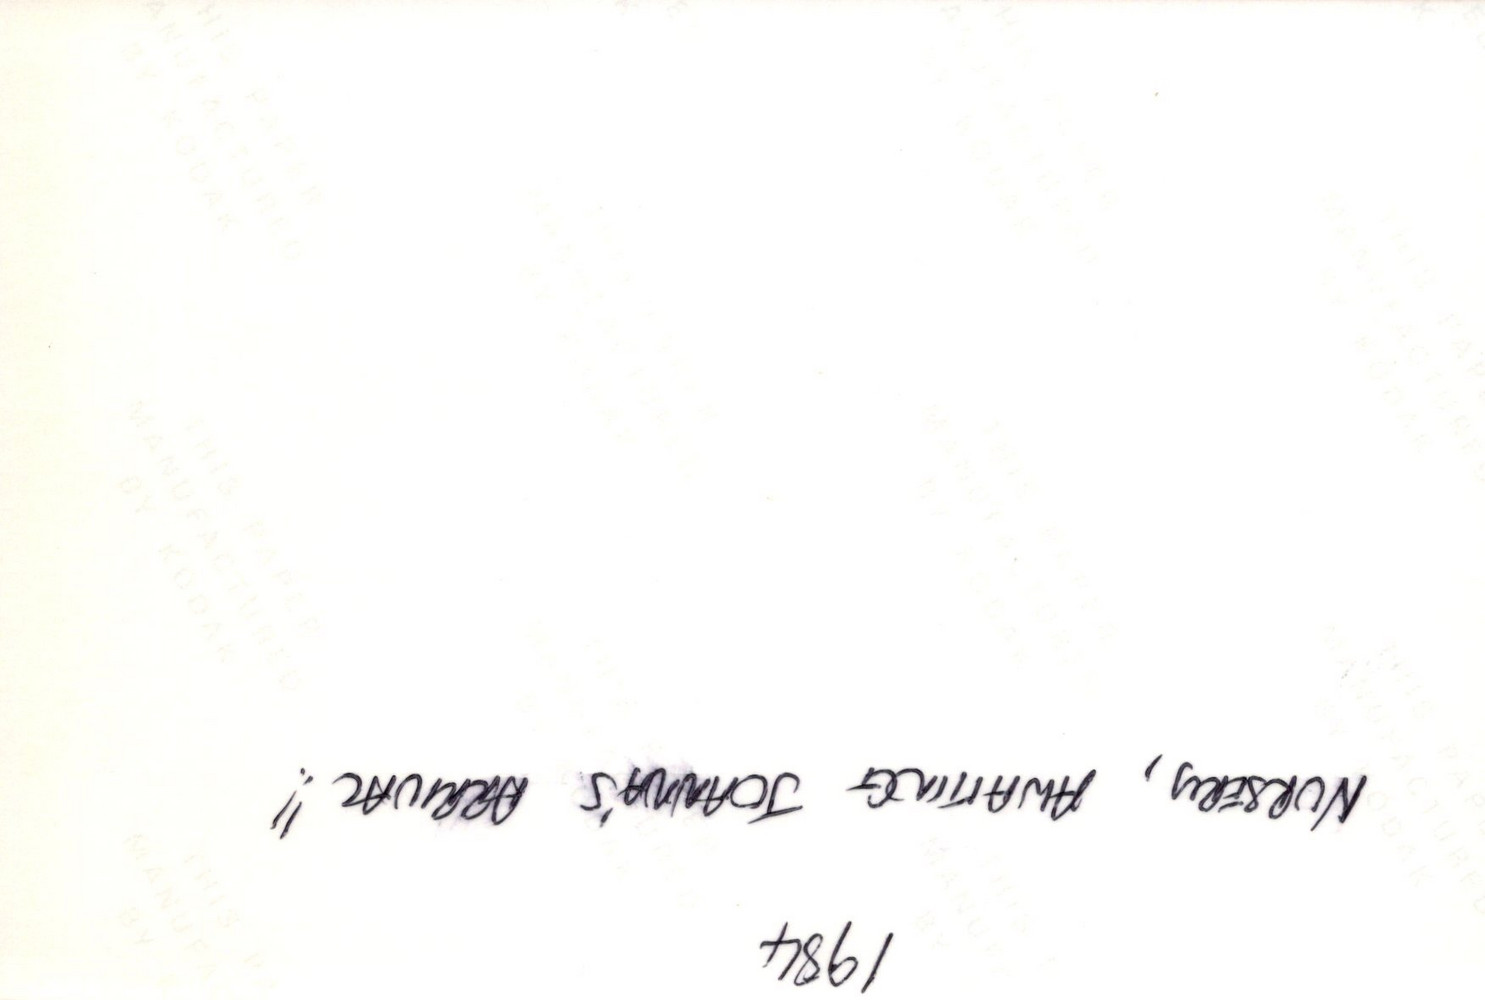 1984
NURSERY, AWAITING JOANNA'S ARRIVAL!!
THIS PAPER
MANUFACTURED
BY KODAK